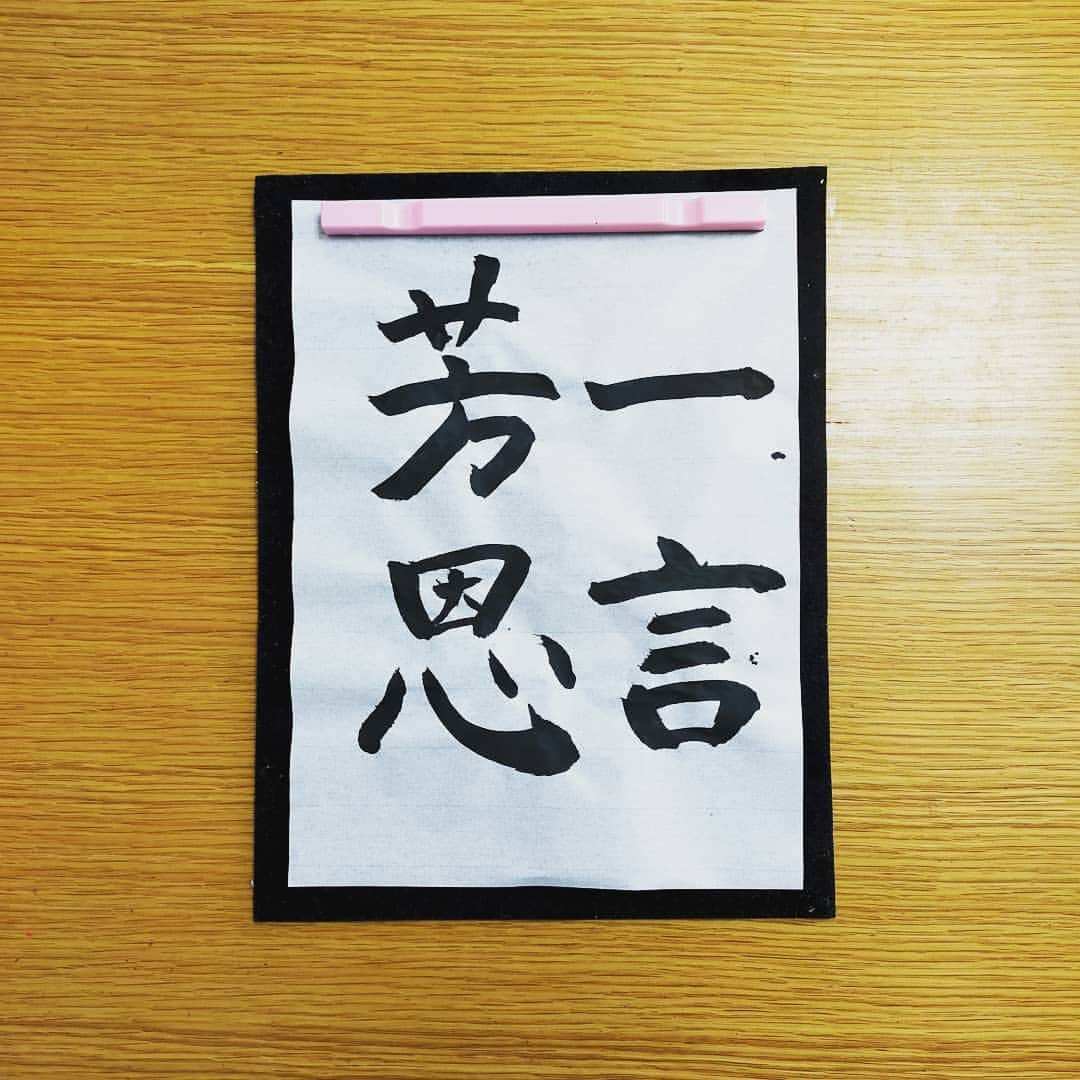 一言
芳恩